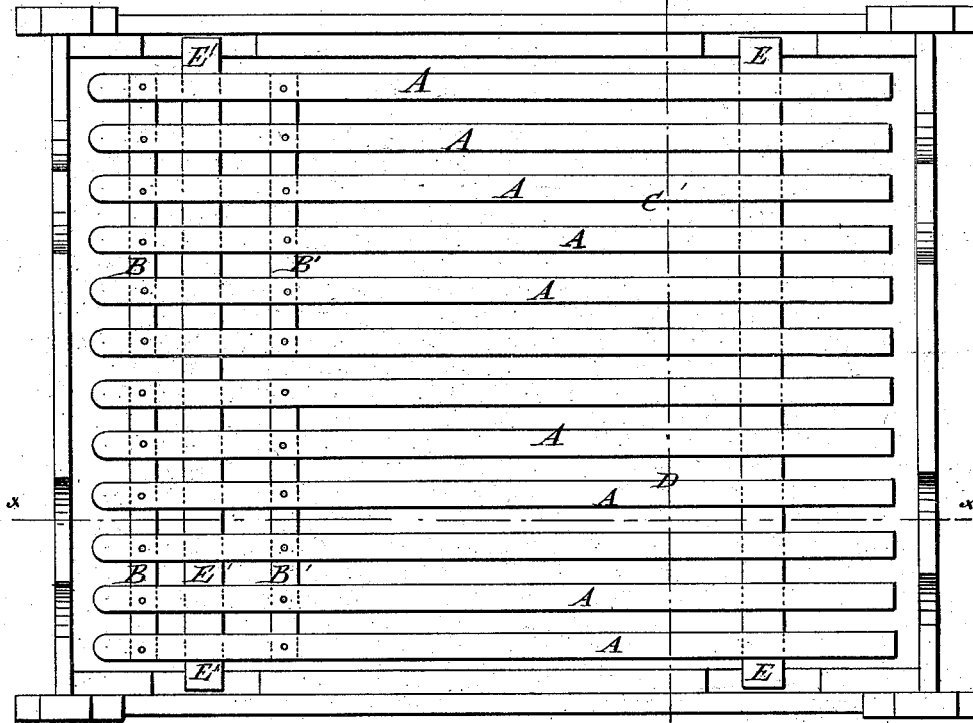 E' E
A
A
A C'
A
B B' A
A
D
A
x x
B E' B' A
A
E' E